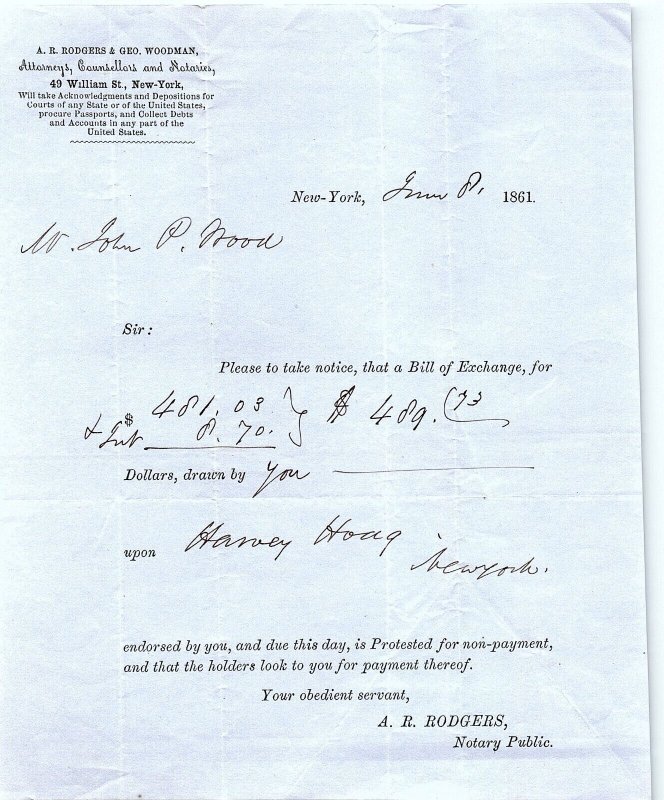 A. R. RODGERS & GEO. WOODMAN,
Attorneys, Counsellors and Notaries,
49 William St., New-York,
Will take Acknowledgments and Depositions for
Courts of any State or of the United States,
procure Passports, and Collect Debts
and Accounts in any part of the
United States.
New-York, June 8, 1861.
Mr. John P. Wood
Sir:
Please to take notice, that a Bill of Exchange, for
$ 481.03 } $ 489.73
& Int. 8.70.
Dollars, drawn by you
upon Harvey Hoag
New York.
endorsed by you, and due this day, is Protested for non-payment,
and that the holders look to you for payment thereof.
Your obedient servant,
A. R. RODGERS,
Notary Public.